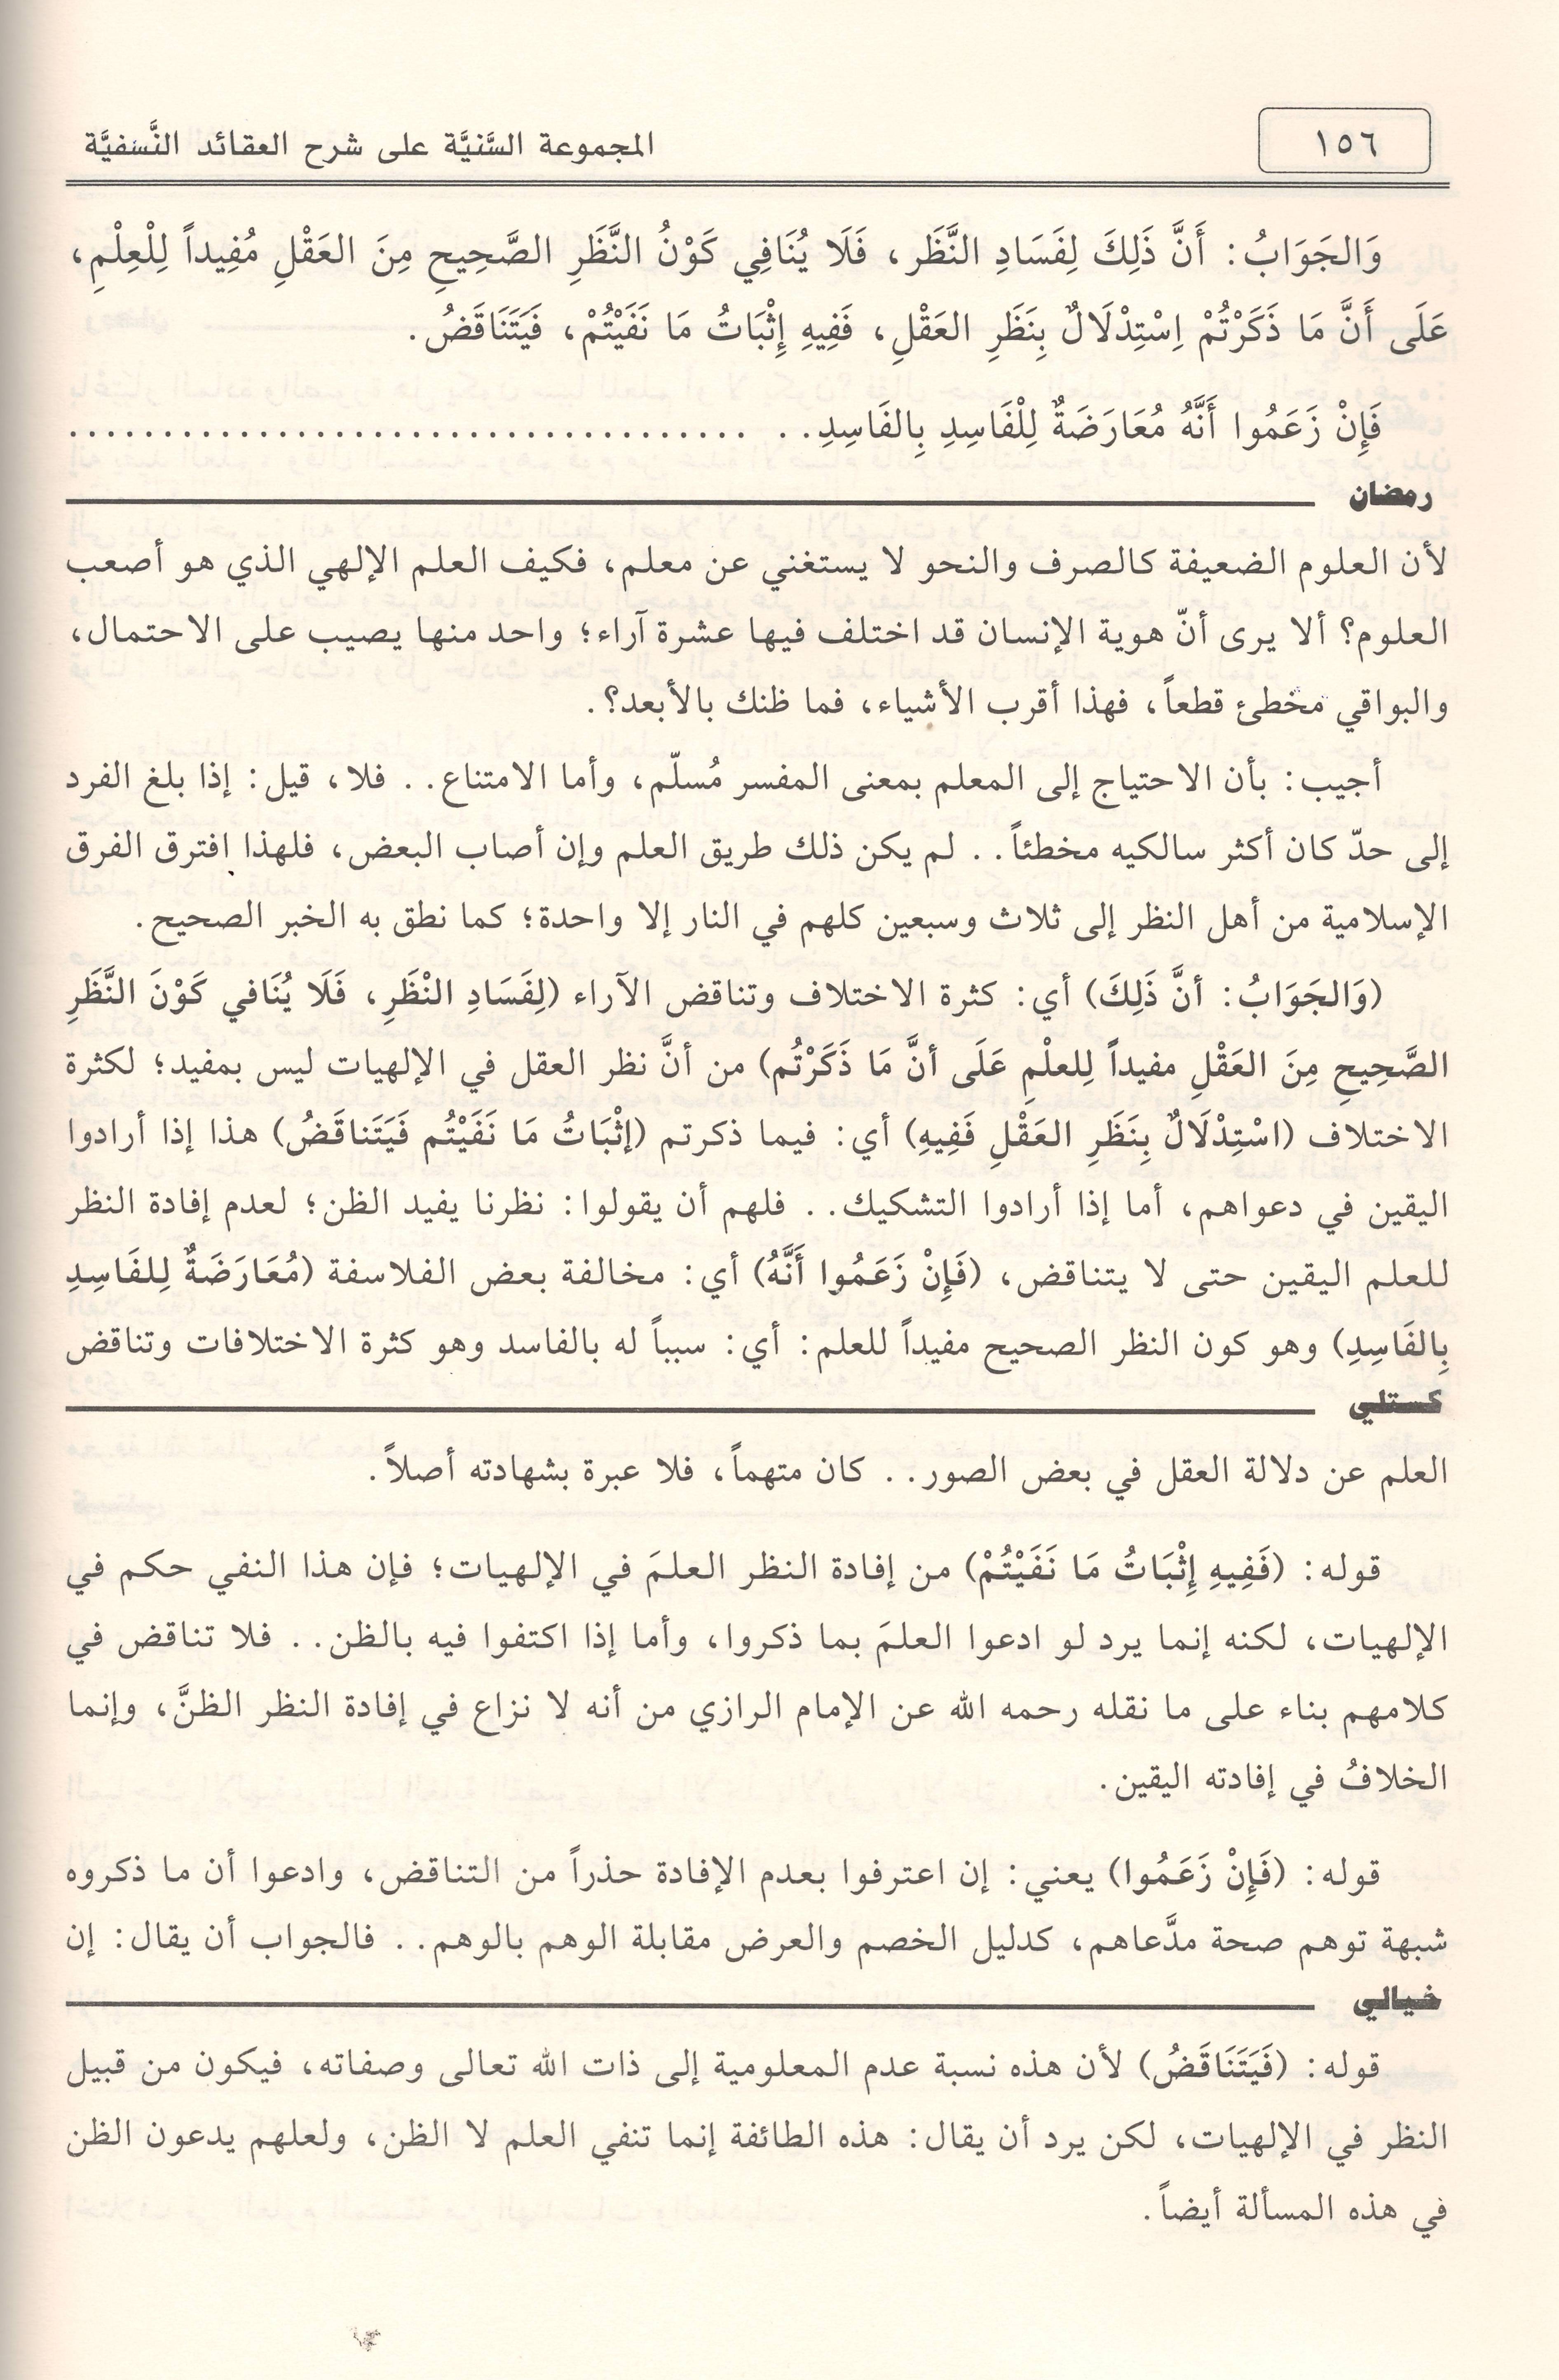 ١٥٦
المجموعة السَّنيَّة على شرح العقائد النَّسَفيَّة
وَالجَوَابُ: أَنَّ ذَلِكَ لِفَسَادِ النَّظَر، فَلَا يُنَافِي كَوْنُ النَّظَرِ الصَّحِيحِ مِنَ العَقْلِ مُفِيداً لِلْعِلْمِ،
عَلَى أَنَّ مَا ذَكَرْتُمْ اِسْتِدْلَالٌ بِنَظَرِ العَقْلِ، فَفِيهِ إِثْبَاتُ مَا نَفَيْتُمْ، فَيَتَنَاقَضُ.
فَإِنْ زَعَمُوا أَنَّهُ مُعَارَضَةٌ لِلْفَاسِدِ بِالفَاسِدِ.. ....................................
رمضان
لأن العلوم الضعيفة كالصرف والنحو لا يستغني عن معلم، فكيف العلم الإلهي الذي هو أصعب
العلوم؟ ألا يرى أنّ هوية الإنسان قد اختلف فيها عشرة آراء؛ واحد منها يصيب على الاحتمال،
والبواقي مخطئ قطعاً، فهذا أقرب الأشياء، فما ظنك بالأبعد؟.
أجيب: بأن الاحتياج إلى المعلم بمعنى المفسر مُسلّم، وأما الامتناع.. فلا، قيل: إذا بلغ الفرد
إلى حدّ كان أكثر سالكيه مخطئاً.. لم يكن ذلك طريق العلم وإن أصاب البعض، فلهذا افترق الفرق
الإسلامية من أهل النظر إلى ثلاث وسبعين كلهم في النار إلا واحدة؛ كما نطق به الخبر الصحيح.
(وَالجَوَابُ: أنَّ ذَلِكَ) أي: كثرة الاختلاف وتناقض الآراء (لِفَسَادِ النْظَرِ، فَلَا يُنَافي كَوْنَ النَّظَرِ
الصَّحِيحِ مِنَ العَقْلِ مفيداً لِلعلْمِ عَلَى أنَّ مَا ذَكَرْتُم) من أنَّ نظر العقل في الإلهيات ليس بمفيد؛ لكثرة
الاختلاف (اسْتِدْلَالٌ بِنَظَرِ العَقْلِ فَفِيهِ) أي: فيما ذكرتم (إثْبَاتُ مَا نَفَيْتُم فَيَتَناقَضُ) هذا إذا أرادوا
اليقين في دعواهم، أما إذا أرادوا التشكيك.. فلهم أن يقولوا: نظرنا يفيد الظن؛ لعدم إفادة النظر
للعلم اليقين حتى لا يتناقض، (فَإِنْ زَعَمُوا أَنَّهُ) أي: مخالفة بعض الفلاسفة (مُعَارَضَةٌ لِلفَاسِدِ
بِالفَاسِدِ) وهو كون النظر الصحيح مفيداً للعلم: أي: سبباً له بالفاسد وهو كثرة الاختلافات وتناقض
كستلي
العلم عن دلالة العقل في بعض الصور.. كان متهماً، فلا عبرة بشهادته أصلاً.
قوله: (فَفِيهِ إِثْبَاتُ مَا نَفَيْتُمْ) من إفادة النظر العلمَ في الإلهيات؛ فإن هذا النفي حكم في
الإلهيات، لكنه إنما يرد لو ادعوا العلمَ بما ذكروا، وأما إذا اكتفوا فيه بالظن.. فلا تناقض في
كلامهم بناء على ما نقله رحمه الله عن الإمام الرازي من أنه لا نزاع في إفادة النظر الظنَّ، وإنما
الخلافُ في إفادته اليقين.
قوله: (فَإِنْ زَعَمُوا) يعني: إن اعترفوا بعدم الإفادة حذراً من التناقض، وادعوا أن ما ذكروه
شبهة توهم صحة مدَّعاهم، كدليل الخصم والعرض مقابلة الوهم بالوهم.. فالجواب أن يقال: إن
خيالي
قوله: (فَيَتَنَاقَضُ) لأن هذه نسبة عدم المعلومية إلى ذات الله تعالى وصفاته، فيكون من قبيل
النظر في الإلهيات، لكن يرد أن يقال: هذه الطائفة إنما تنفي العلم لا الظن، ولعلهم يدعون الظن
في هذه المسألة أيضاً.